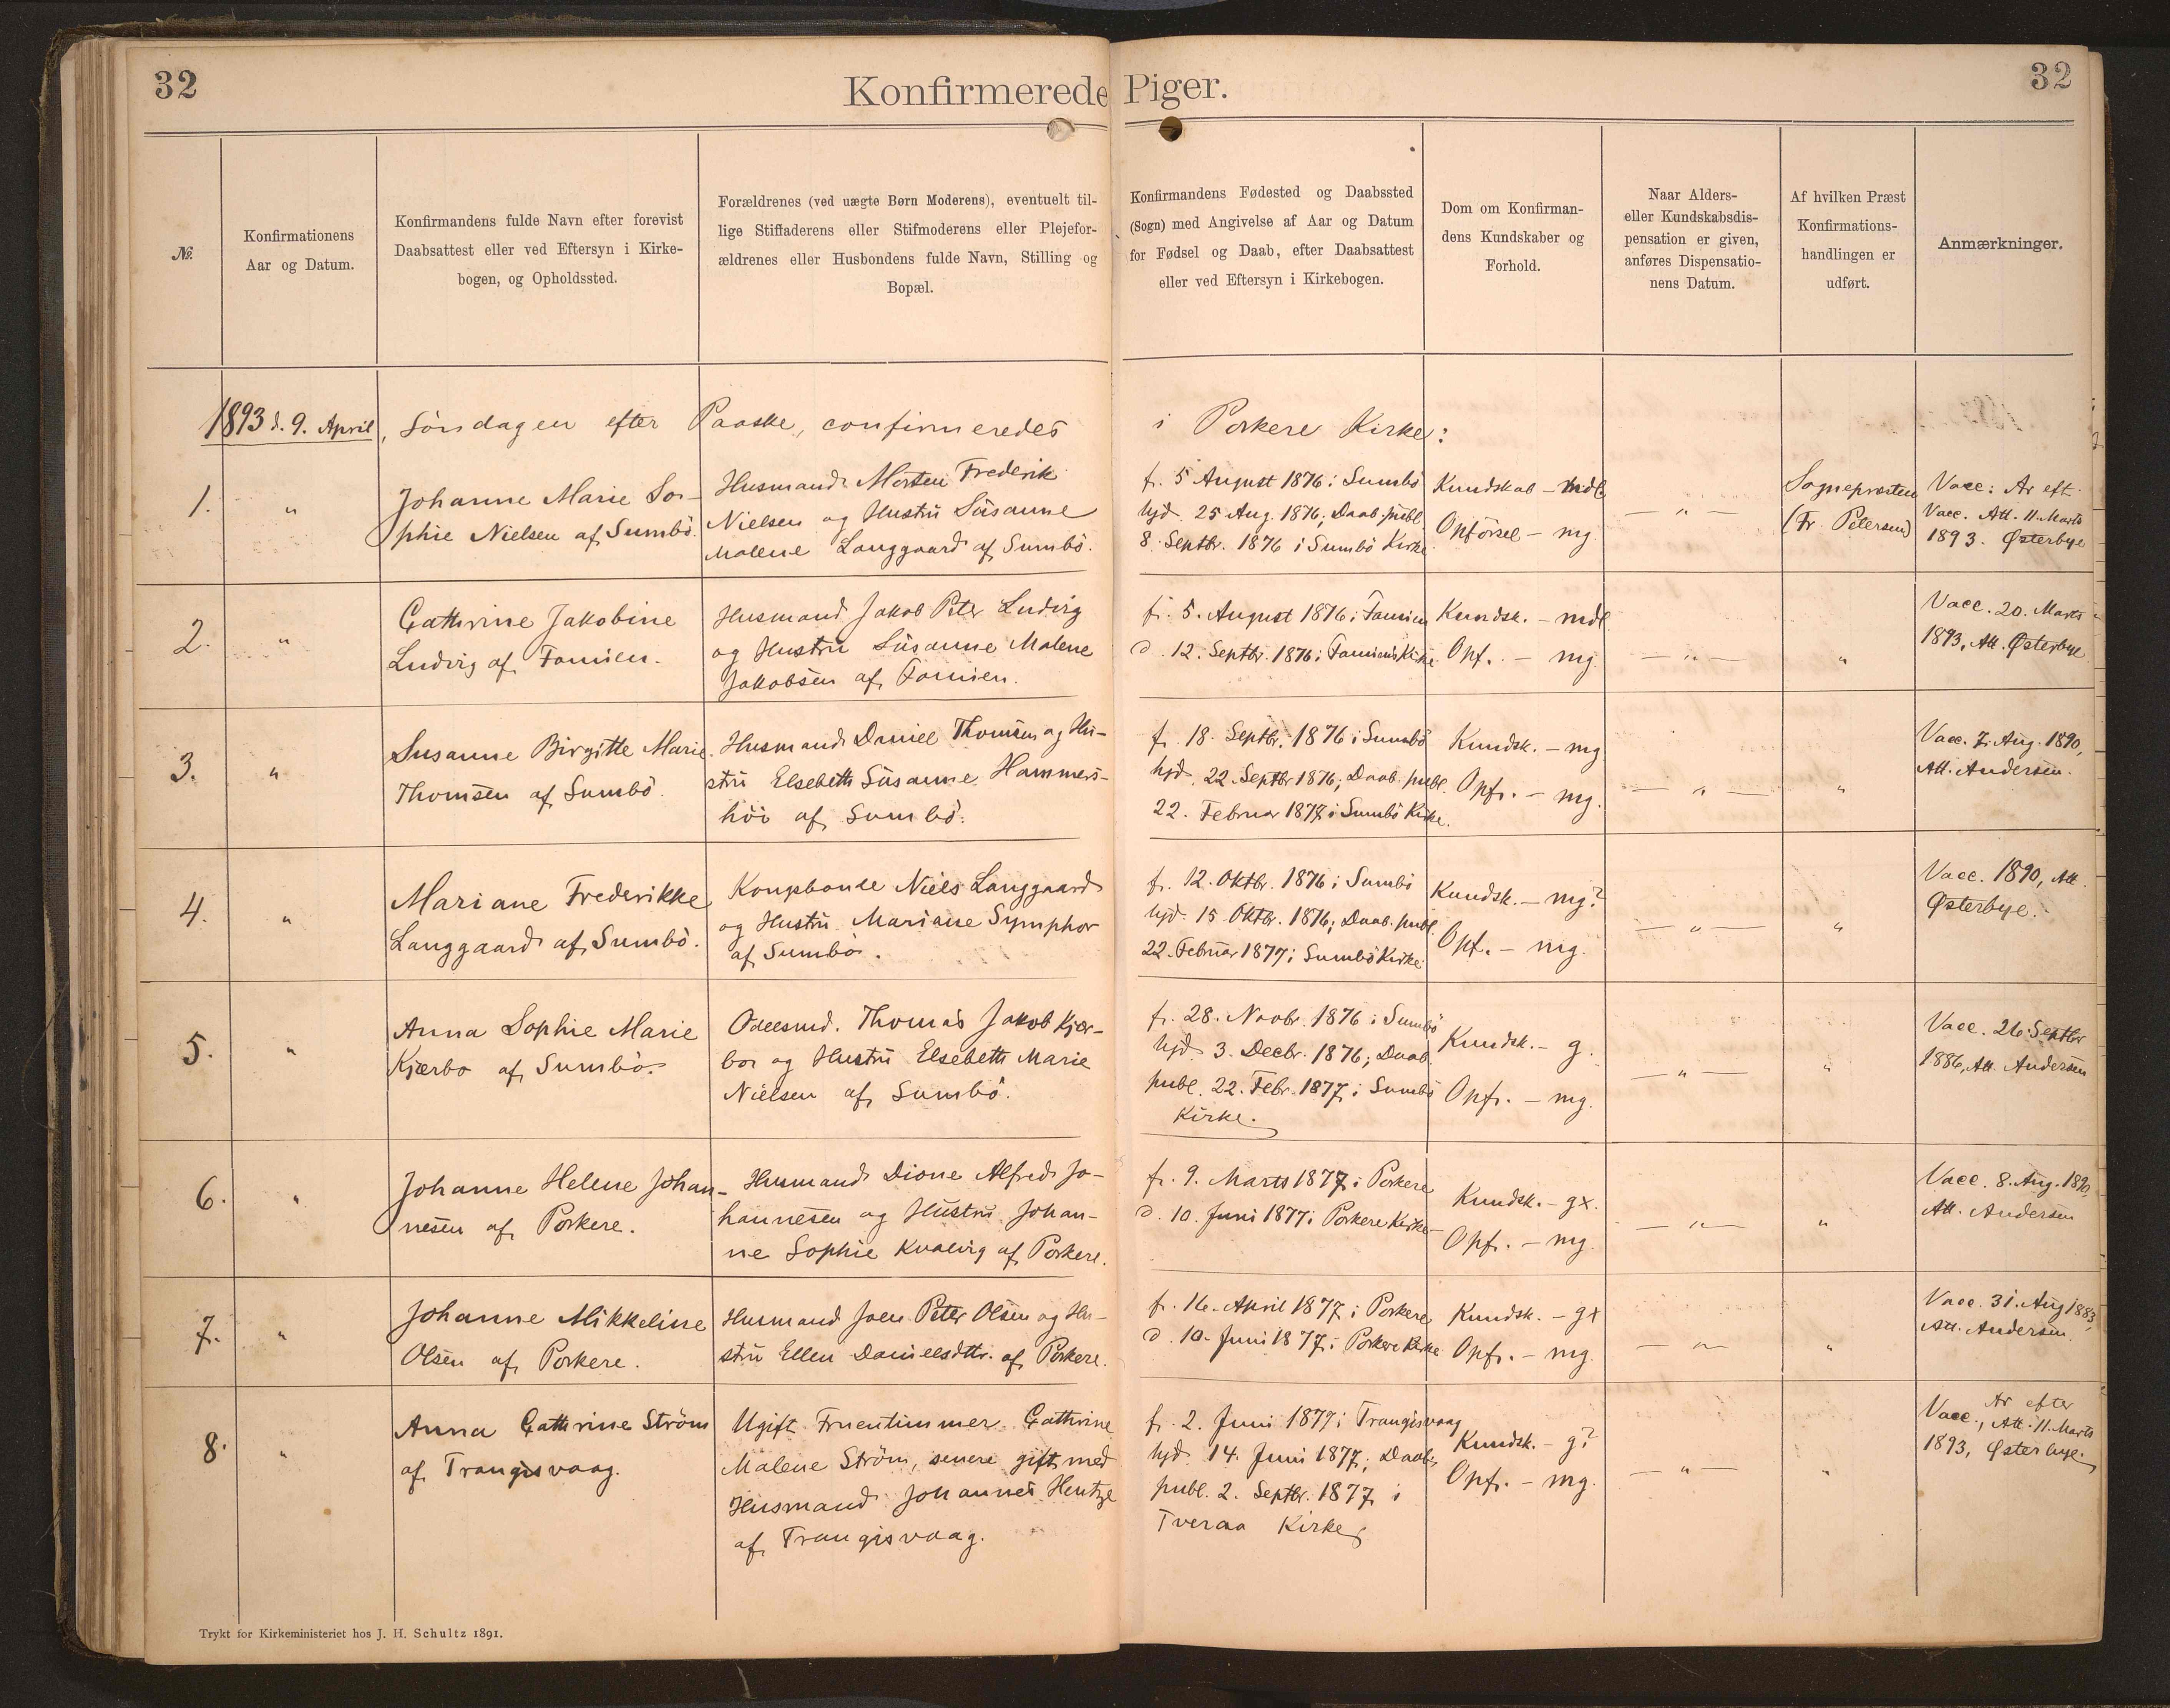 32
Konfirmerede Piger.
32
№
Konfirmationens
Aar og Datum.
Konfirmandens fulde Navn efter forevist
Daabsattest eller ved Eftersyn i Kirke-
bogen, og Opholdssted.
Forældrenes (ved uægte Børn Moderens), eventuelt til-
lige Stiffaderens eller Stifmoderens eller Plejefor-
ældrenes eller Husbondens fulde Navn, Stilling og
Bopæl.
Konfirmandens Fødested og Daabssted
(Sogn) med Angivelse af Aar og Datum
for Fødsel og Daab, efter Daabsattest
eller ved Eftersyn i Kirkebogen.
Dom om Konfirman-
dens Kundskaber og
Forhold.
Naar Alders-
eller Kundskabsdis-
pensation er given,
anføres Dispensatio-
nens Datum.
Af hvilken Præst
Konfirmations-
handlingen er
udført.
Anmærkninger.
1893 d. 9. April, Söndagen efter Paaske, confirmeredes i Porkere Kirke:
1.
"
Johanne Marie So-
phie Nielsen af Sumbö.
Husmand Morten Frederik
Nielsen og Hustru Susanne
Malene Langgaard af Sumbö.
f. 5 August 1876 i Sumbö
hjd. 25 Aug. 1876; Daab. publ.
8. Septbr. 1876 i Sumbö Kirke
Kundskab - mdl
Opförsel - mg.
— " —
Sognepræsten
(Fr. Petersen)
Vacc: Ar eft.
Vacc. Att. 11. Marts
1893. Østerbye
2.
"
Cathrine Jakobine
Ludvig af Famien.
Husmand Jakob Peter Ludvig
og Hustru Susanne Malene
Jakobsen af Famien.
f. 5. August 1876 i Famien
d. 12. Septbr. 1876 i Famiens Kirke
Kundsk. - mdl
Opf. - mg.
— " —
"
Vacc. 20. Marts
1893, Att. Østerbye
3.
"
Susanne Birgitte Marie
Thomsen af Sumbö.
Husmand Daniel Thomsen og Hu-
stru Elsebeth Susanne Hammers-
höi af Sumbö.
f. 18. Septbr. 1876 i Sumbö
hjd. 22 Septbr 1876; Daab. publ.
22. Februar 1877 i Sumbö Kirke.
Kundsk. - mg
Opf. - mg.
— " —
"
Vacc. 7. Aug. 1890,
Att. Andersen.
4.
"
Mariane Frederikke
Langgaard af Sumbö.
Kongsbonde Niels Langgaard
og Hustru Mariane Symphor
af Sumbö.
f. 12. Oktbr. 1876 i Sumbö
hjd. 15 Oktbr. 1876; Daab. publ.
22. Februar 1877 i Sumbö Kirke
Kundsk. - mg?
Opf. - mg.
— " —
"
Vacc. 1890, Att.
Østerbye.
5.
"
Anna Sophie Marie
Kjærbo af Sumbö.
Odelsmd. Thomas Jakob Kjær-
bo og Hustru Elsebeth Marie
Nielsen af Sumbö.
f. 28. Novbr. 1876 i Sumbö
hjd 3. Decbr. 1876; Daab
publ. 22. Febr. 1877 i Sumbö
Kirke.
Kundsk. - g.
Opf. - mg.
— " —
"
Vacc. 26. Septbr
1886, Att. Andersen
6.
"
Johanne Helene Johan-
nesen af Porkere.
Husmand Dione Alfred Jo-
hannesen og Hustru Johan-
ne Sophie Kvalvig af Porkere.
f. 9. Marts 1877 i Porkere
d. 10. Juni 1877 i Porkere Kirke
Kundsk. - gx.
Opf. - mg.
— " —
"
Vacc. 8. Aug. 1890
Att. Andersen
7.
"
Johanne Mikkeline
Olsen af Porkere.
Husmand Joen Peter Olsen og Hu-
stru Ellen Danielsdttr. af Porkere.
f. 16. April 1877 i Porkere
d. 10. Juni 1877 i Porkere Kirke
Kundsk. - gx
Opf. - mg.
— " —
"
Vacc. 31. Aug 1883,
Att. Andersen.
8.
"
Anna Cathrine Ström
af Trangisvaag.
Ugift Fruentimmer Cathrine
Malene Ström, senere gift med
Husmand Johannes Hentze
af Trangisvaag.
f. 2. Juni 1877 i Trangisvaag
hjd. 14. Juni 1877; Daab
publ. 2. Septbr. 1877 i
Tveraa Kirke
Kundsk. - g?
Opf. - mg.
— " —
"
Ar efter
Vacc., Att. 11. Marts
1893, Østerbye.
Trykt for Kirkeministeriet hos J. H. Schultz 1891.